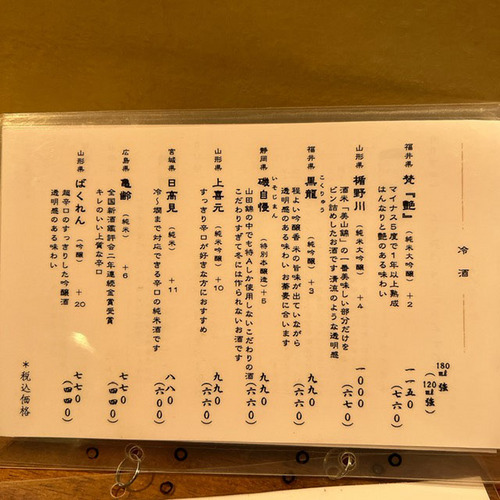 冷酒
180ml強
(120ml強)
福井県 梵『艶』(純米大吟醸)+2 一一五〇
マイナス5度で1年以上熟成 (七六〇)
はんなりと艶のある味わい
山形県 楯野川(純米大吟醸)+4 一〇〇〇
酒米「美山錦」の一番美味しい部分だけを (六六〇)
ビン詰めしたお酒です 清流のような透明感
こくりゅう
福井県 黒龍(純吟醸)+3 九九〇
程よい吟醸香 米の旨味が出ていながら (六六〇)
透明感のある味わい お蕎麦に合います
いそじまん
静岡県 磯自慢(特別本醸造)+5 九九〇
山田錦の中でも特Aしか使用しないこだわりの酒 (六六〇)
こだわりすぎて冬には作られないお酒です
山形県 上喜元(純米吟醸)+10 九九〇
すっきり辛口が好きな方におすすめ (六六〇)
宮城県 日高見(純米)+11 八八〇
冷〜燗まで対応できる辛口の純米酒です (六六〇)
広島県 亀齢(純米)+6 七七〇
全国新酒鑑評会二年連続金賞受賞 (四四〇)
キレのいい上質な辛口
山形県 ばくれん(吟醸)+20 七七〇
超辛口のすっきりした吟醸酒 (四四〇)
透明感のある味わい
*税込価格